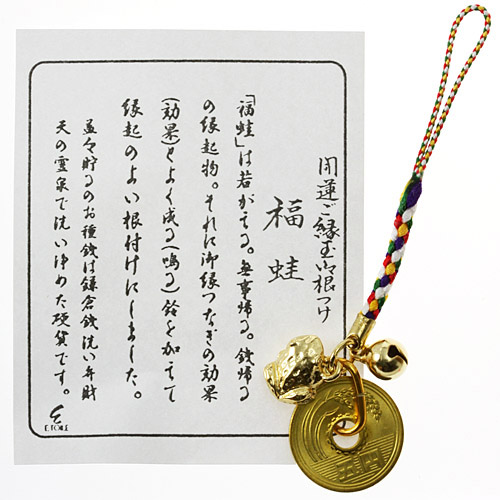 開運ご縁玉御根つけ
福蛙
「福蛙」は若がえる。無事帰る。銭帰る
の縁起物。それに御縁つなぎの効果
(効果)もよく成る(鳴る)鈴を加えて
縁起のよい根付けにしました。
益々貯るのお種銭は鎌倉銭洗い弁財
天の霊泉で洗い浄めた硬貨です。
E.TOILE
五円